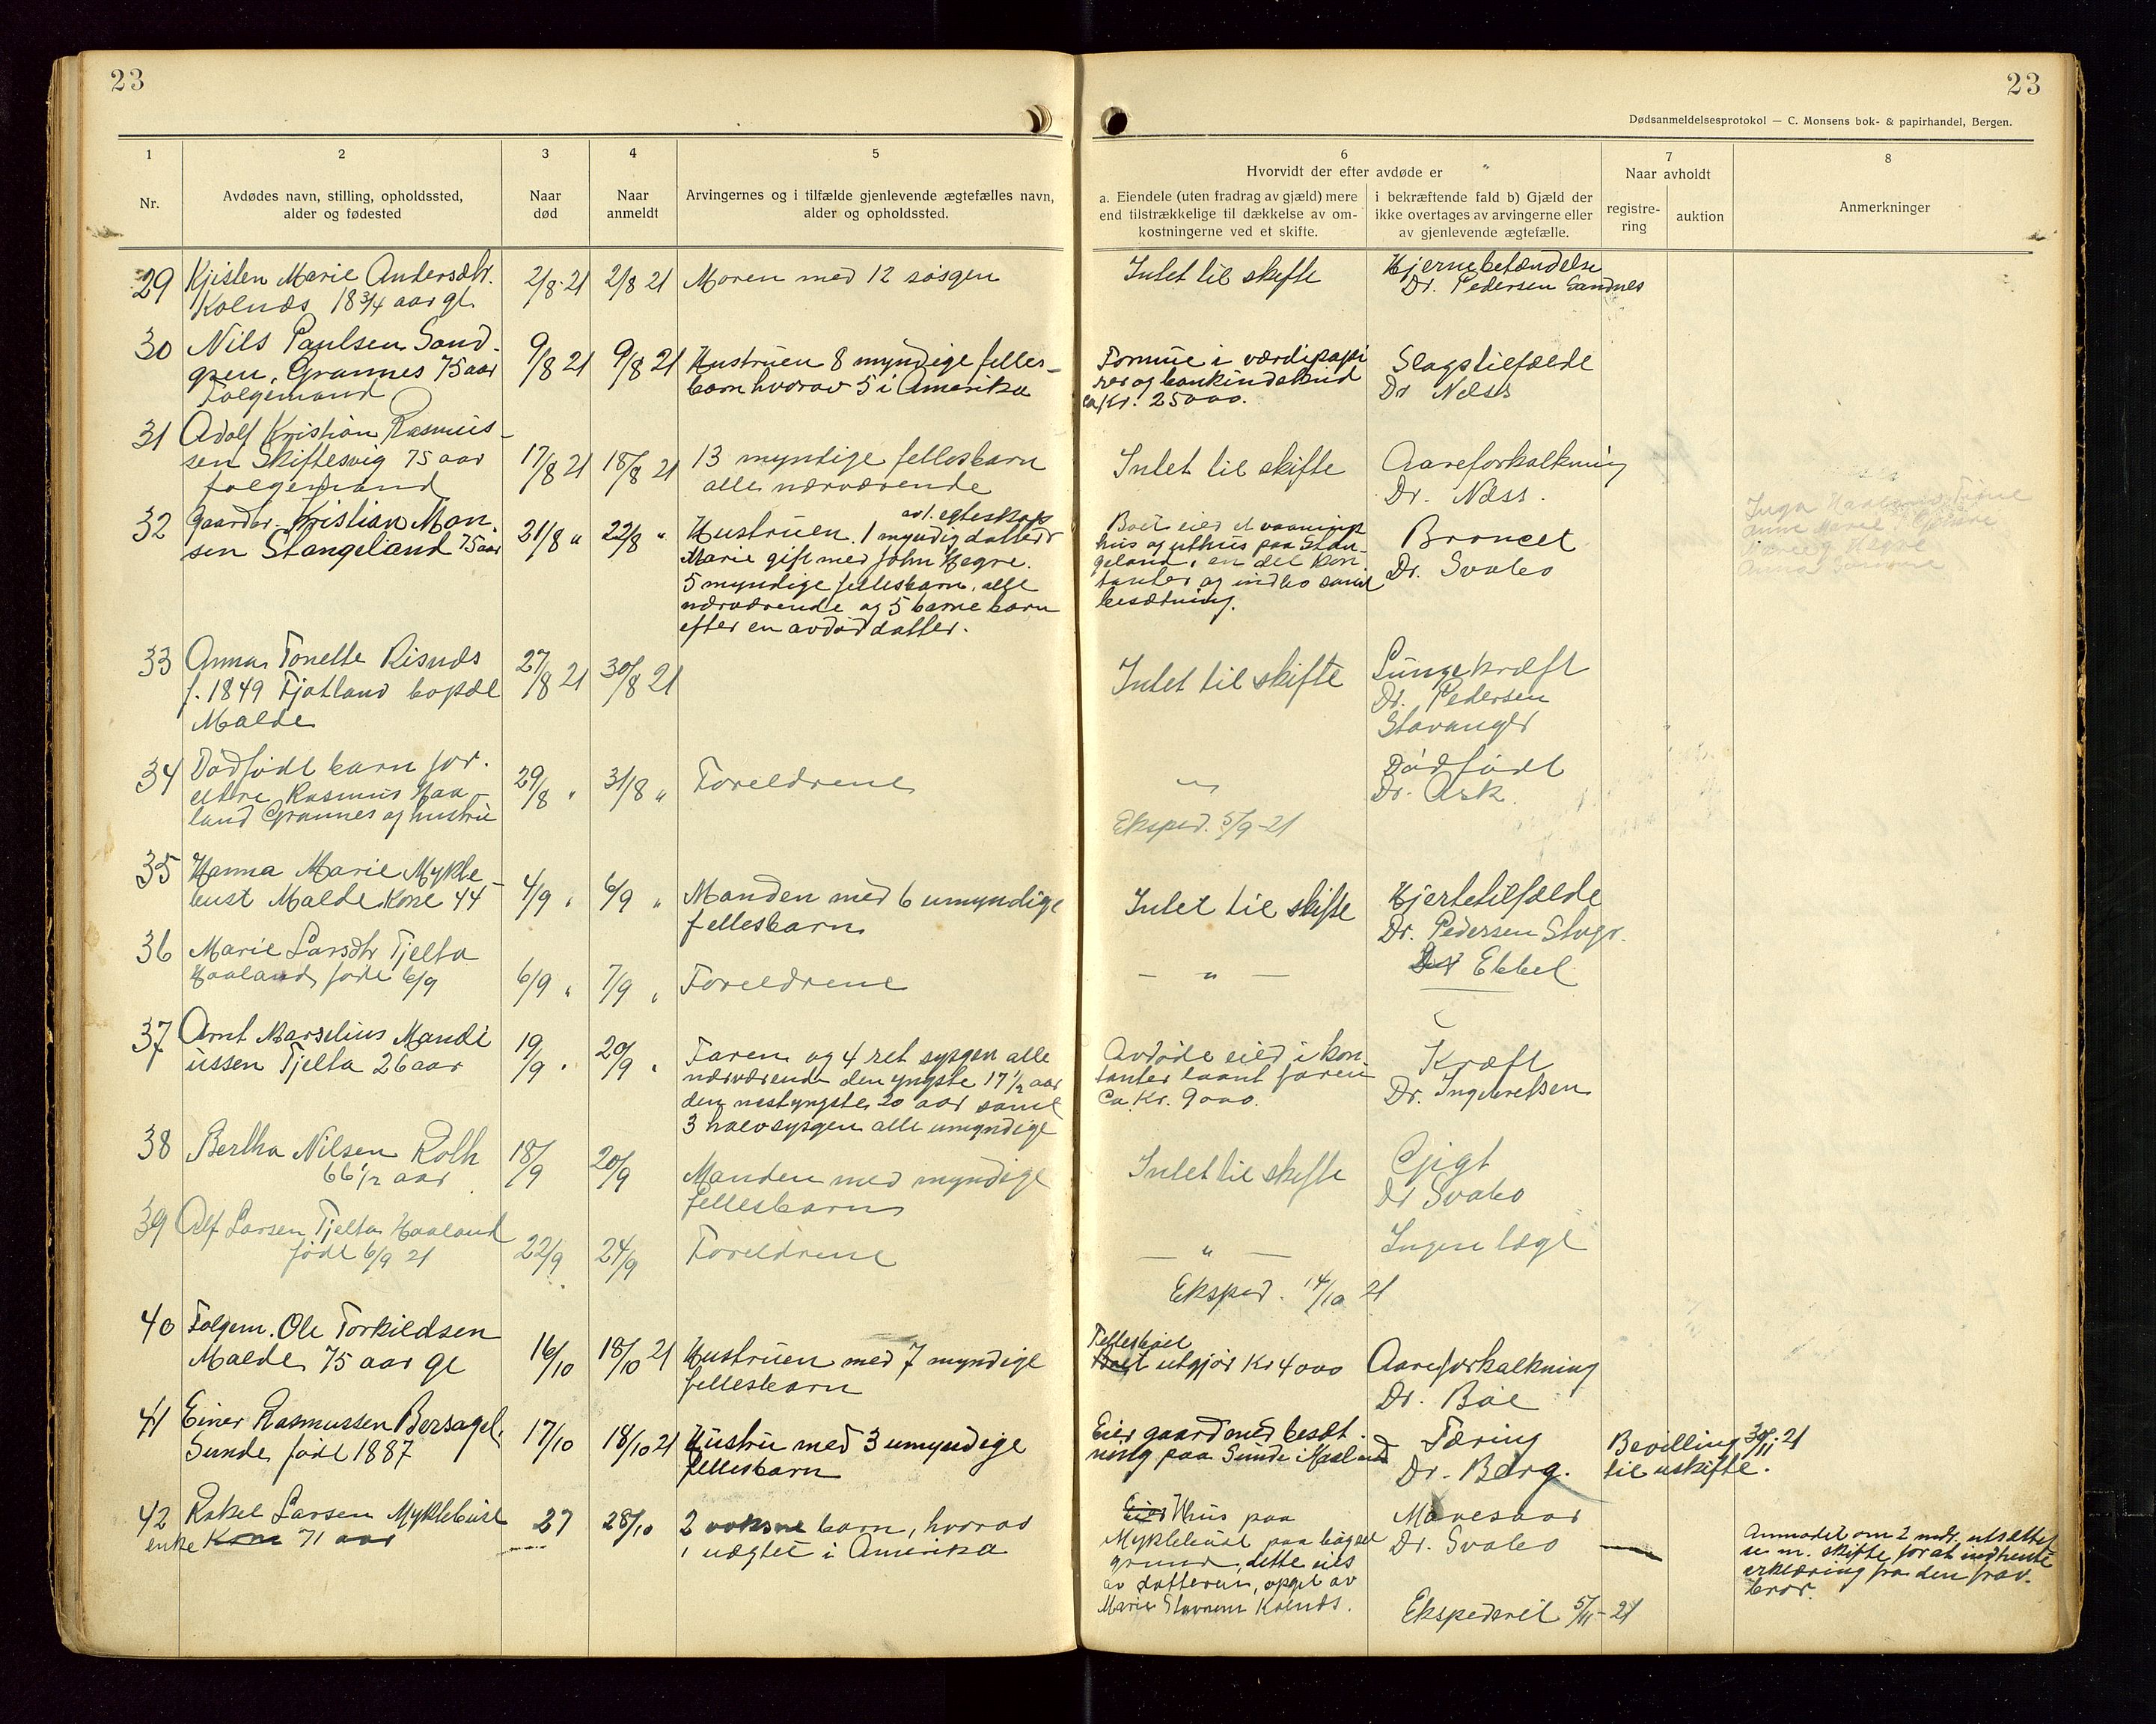 23
23
Dødsanmeldelsesprotokol — C. Monsens bok- & papirhandel, Bergen.
1
2
3
4
5
6
7
8
Nr.
Avdødes navn, stilling, opholdssted,
alder og fødested
Naar
død
Naar
anmeldt
Arvingernes og i tilfælde gjenlevende ægtefælles navn,
alder og opholdssted.
Hvorvidt der efter avdøde er
a. Eiendele (uten fradrag av gjæld) mere
end tilstrækkelige til dækkelse av om-
kostningerne ved et skifte.
i bekræftende fald b) Gjæld der
ikke overtages av arvingerne eller
av gjenlevende ægtefælle.
Naar avholdt
registre-
ring
auktion
Anmerkninger
29
Kjisten Marie Andersdtr.
Kolnæs 18 3/4 aar gl.
2/8-21
2/8 21
Moren med 12 søsgen
Intet til skifte
Hjernebetændelse
Dr. Pedersen Sandnes
30
Nils Paulsen Sand-
gren, Grannes 75 aar
Folgemand
9/8 21
9/8 21
Hustruen 8 myndige felles-
barn hvorav 5 i Amerika
Formue i værdipapi
rer og bankindskud
ca Kr. 25000.
Slagstilfælde
Dr Næss
31
Adolf Kristian Rasmus-
sen Skiftesvig 75 aar
folgemand
17/8 21
18/8 21
13 myndige fellesbarn
alle nærværende
Intet til skifte
Aareforkalkning
Dr. Næss.
32
Gaardbr. Kristian Mon-
sen Stangeland 75 aar
21/8 "
22/8 "
av 1. egteskap
Hustruen. 1 myndig datter
Marie gift med John Hegre.
5 myndige fellesbarn, alle
nærværende og 5 barnebarn
efter en avdød datter.
Boet eier et vaanings
hus og uthus paa Stan-
geland, en del kon-
tanter og indbo samt
besætning.
Broncet
Dr. Svabo
33
Anna Tonette Risnæs
f. 1849 Fjotland bopæl
Malde
27/8 21
30/8 21
Intet til skifte
Lungekræft
Dr. Pedersen
Stavanger
34
Dødfødt barn for-
eldre Rasmus Haa-
land Grannes og hustru
29/8 "
31/8 "
Foreldrene
"
Dødfødt
Dr. Ask.
Eksped. 5/9-21
35
Hanna Marie Mykle-
bust Malde Kone 44
4/9 "
6/9 "
Manden med 6 umyndige
fellesbarn
Intet til skifte
Hjertetilfælde
Dr. Pedersen Stvgr.
36
Marie Larsdtr Tjelta
Haaland, født 6/9
6/9 "
7/9 "
Foreldrene
— " —
Ebbel
37
Arnt Marselius Mandi
ussen Tjelta 26 aar
19/9 "
20/9 "
Faren og 4 ret sysgen alle
nærværende den yngste 17 1/2 aar
den nestyngste 20 aar samt
3 halvsysgen alle umyndige
Avdøde eier i kon-
tanter laant faren
Ca. Kr. 9000.
Kræft
Dr. Ingebretsen
38
Bertha Nilsen Roth
66 1/2 aar
18/9
20/9
Manden med myndige
fellesbarn
Intet til skifte
Gigt
Dr Svabo
39
Alf Larsen Tjelta Haaland
født 6/9 21
22/9
24/9
Foreldrene
— " —
Ingen læge
Eksped. 14/10 21
40
Folgem. Ole Torkildsen
Malde 75 aar gl
16/10
18/10 21
Hustruen med 7 myndige
fellesbarn
Fellesboet
utgjør Kr 4000
Aareforkalkning
Dr. Bøe
41
Einer Rasmussen Bersagel,
Sunde født 1887
17/10
18/10 21
Hustru med 3 umyndige
fellesbarn
Eier gaard med besæt-
ning paa Sunde i Haaland
Tæring
Dr. Berg.
Bevilling 30/11-21
til uskifte.
42
Rakel Larsen Myklebust
enke Kone 71 aar
27
28/10
2 voksne barn, hvorav
1 uægtet i Amerika
Eier Hus paa
Myklebust paa bygsel
grund, dette eies
av datteren, opgit av
Marie Stavnem Kolnæs.
Mavesaar
Dr. Svabo
—
Anmodet om 2 mdr. utsættel
se m. skifte for at indhente
erklæring fra den frav.
bror.
Ekspederet 5/11-21